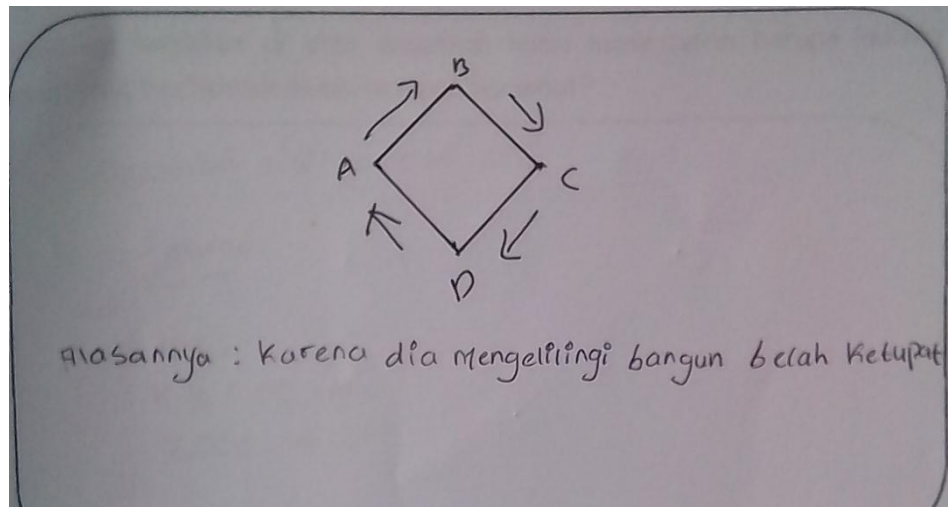 B
A
C
D
alasannya : Karena dia Mengelilingi bangun belah Ketupat